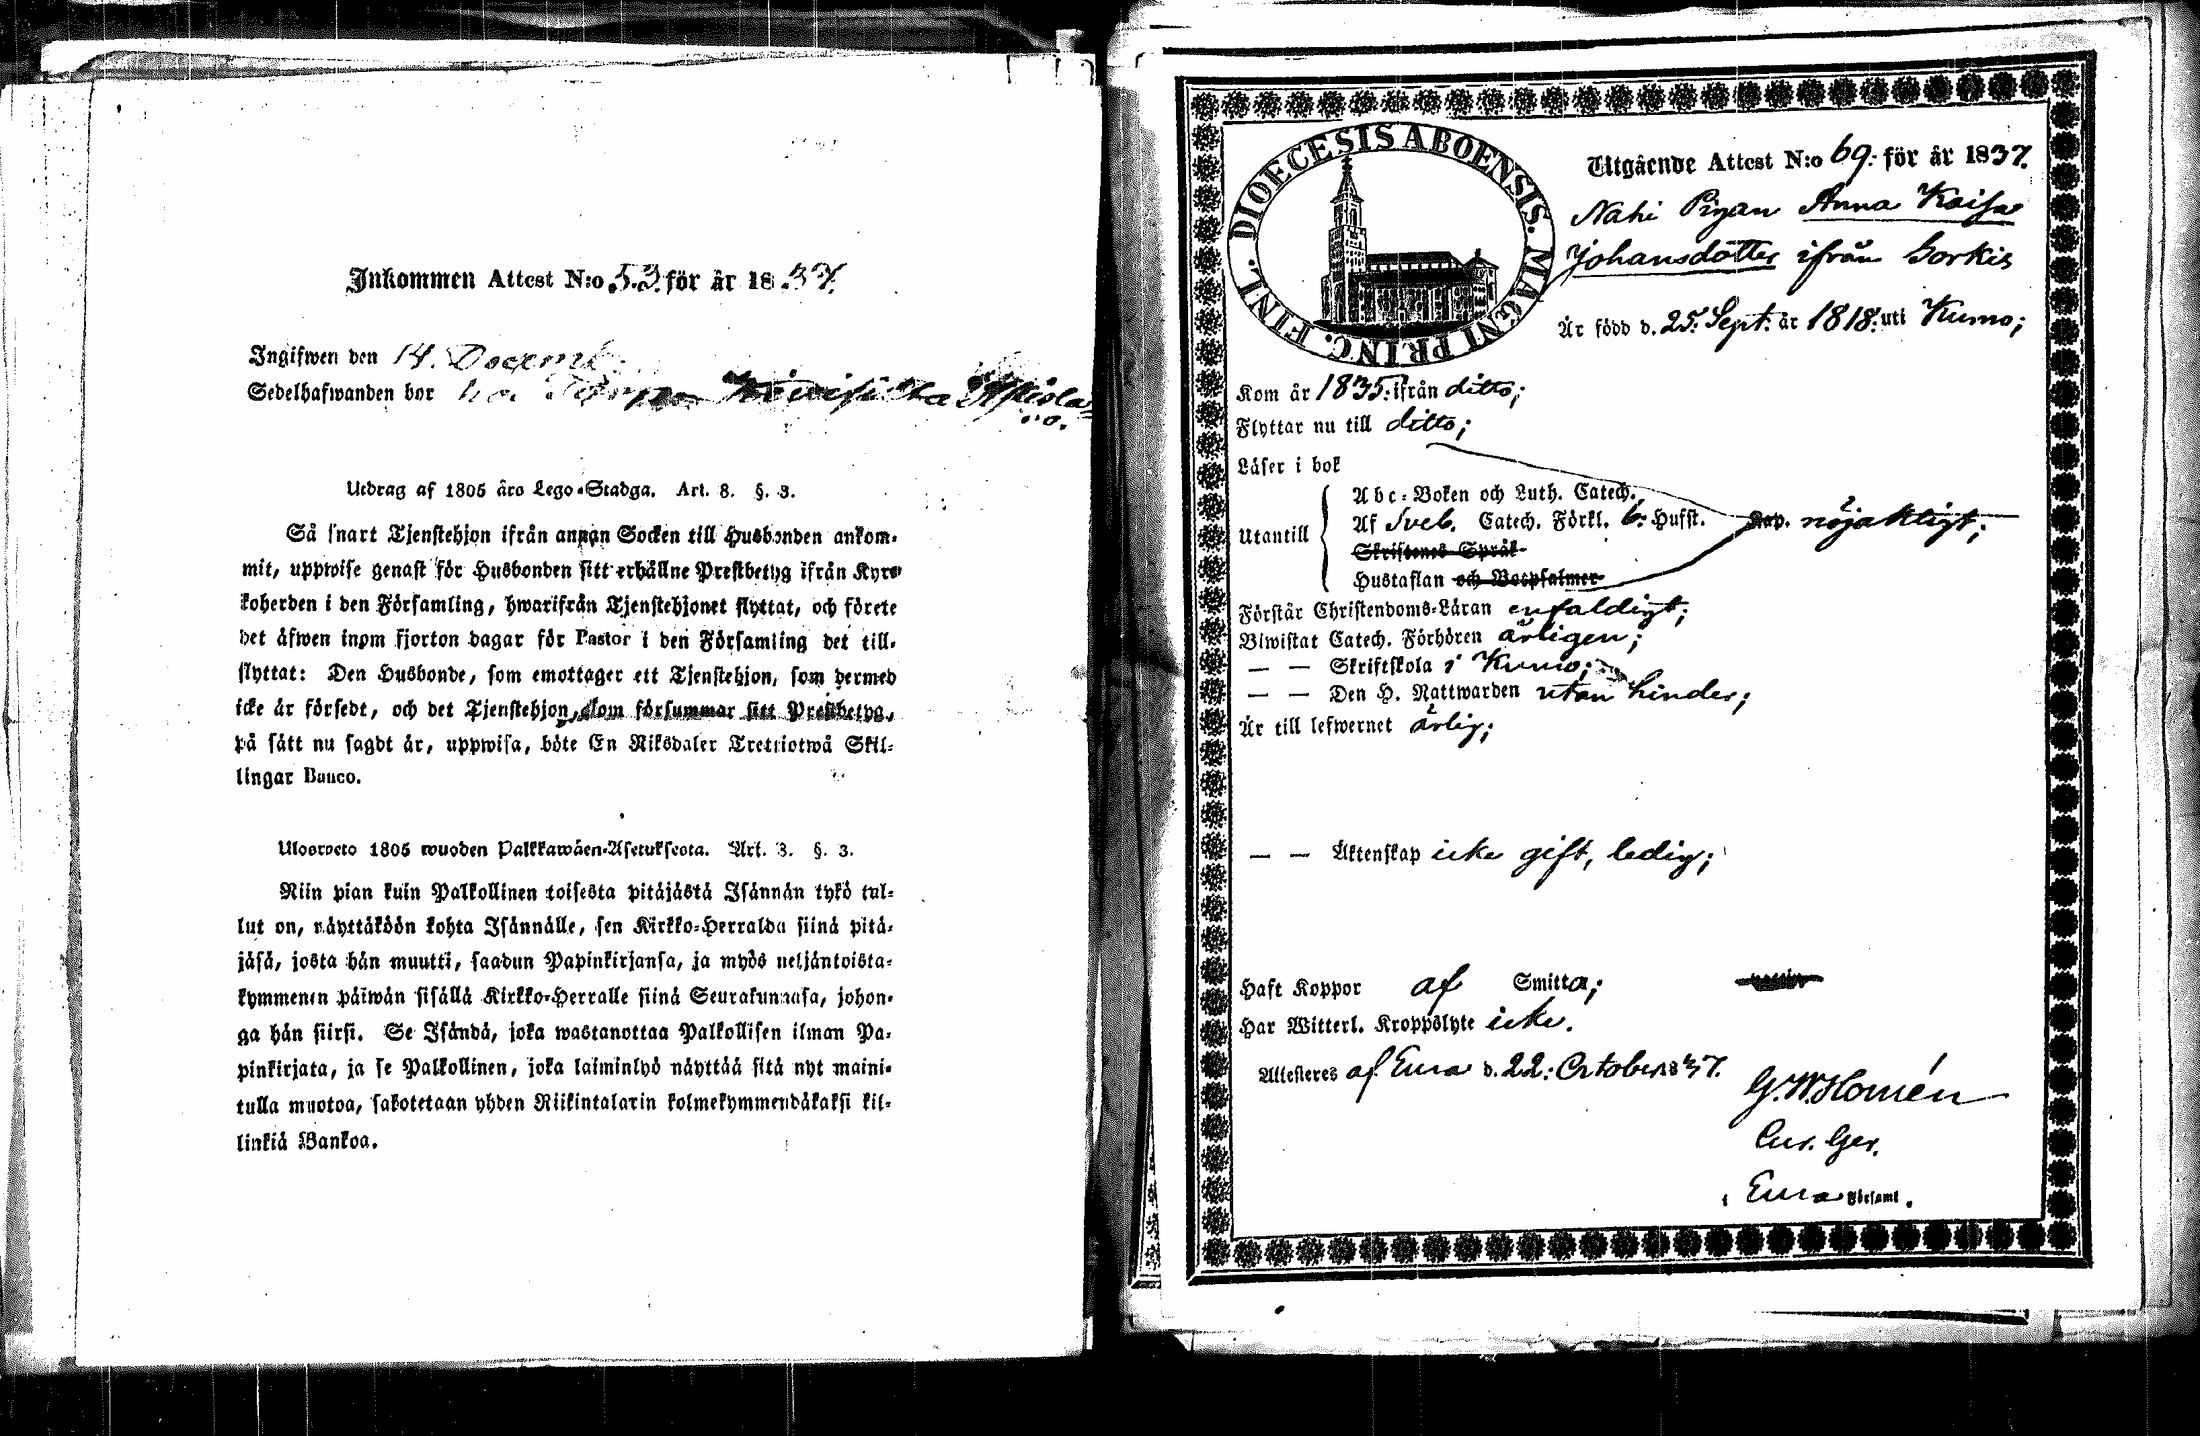 Inkommen Attest N:o 53 för år 1837.
Ingifwen den 14. Decemb.
Sedelhafwanden bor
Utdrag af 1805 åro Lego-Stadga. Art. 8. §. 3.
Så snart Tjenstehjon ifrån annan Socken till Husbonden ankom-
mit, uppwise genast för Husbonden sitt erhållne Prestbetyg ifrån Kyr-
koherden i den Församling, hwarifrån Tjenstehjonet flyttat, och förete
det äfwen inom fjorton dagar för Pastor i den Församling det till-
flyttat: Den Husbonde, som emottager ett Tjenstehjon, som dermed
icke är försedt, och det Tjenstehjon, som försummar sitt Prestbetyg,
på sätt nu sagdt är, uppwisa, böte En Riksdaler Trettiotwå Skil-
lingar Banco.
Ulosweto 1805 wuoden Palkkawäen-Asetuksesta. Art. 8. §. 3.
Niin pian kuin Palkollinen toisesta pitäjästä Isännän tykö tul-
lut on, näyttäköön kohta Isännälle, sen Kirkko-Herralda siinä pitä-
jäsä, josta hän muutti, saadun Papinkirjansa, ja myös neljäntoista-
kymmenen päiwän sisällä Kirkko-Herralle siinä Seurakunnasa, johon-
ga hän siirsi. Se Isändä, joka wastanottaa Palkollisen ilman Pa-
pinkirjata, ja se Palkollinen, joka laiminlyö näyttää sitä nyt maini-
tulla muotoa, sakotetaan yhden Riikintalarin kolmekymmendäkaksi kil-
linkiä Bankoa.
DIOECESIS ABOENSIS. MAGNI PRINC. FINL.
Utgående Attest N:o 69: för år 1837.
Pigan Anna Kaisa
Johansdotter ifrån Sorkis
Är född d. 25. Sept. år 1818: uti Kumo;
Kom år 1835: ifrån ditto;
Flyttar nu till ditto;
Läser i bok
Utantill
Abc-Boken och Luth. Catech.
Af Sveb. Catech. Förkl. 6: Hufst. Kap. nöjaktigt;
Skriftenes Språk
Hustaflan och Botpsalmer
Förstår Christendoms-Läran enfaldigt;
Biwistat Catech. Förhören årligen;
— — Skriftskola i Kumo;
— — Den H. Nattwarden utan hinder;
Är till lefwernet ärlig;
— — Äktenskap icke gift, ledig;
Haft Koppor af Smitta;
Har Witterl. Kroppslyte icke.
Attesteres af Eura d. 22: October 1837.
G. W. Homén
Cur. Ger.
i Eura Församl.